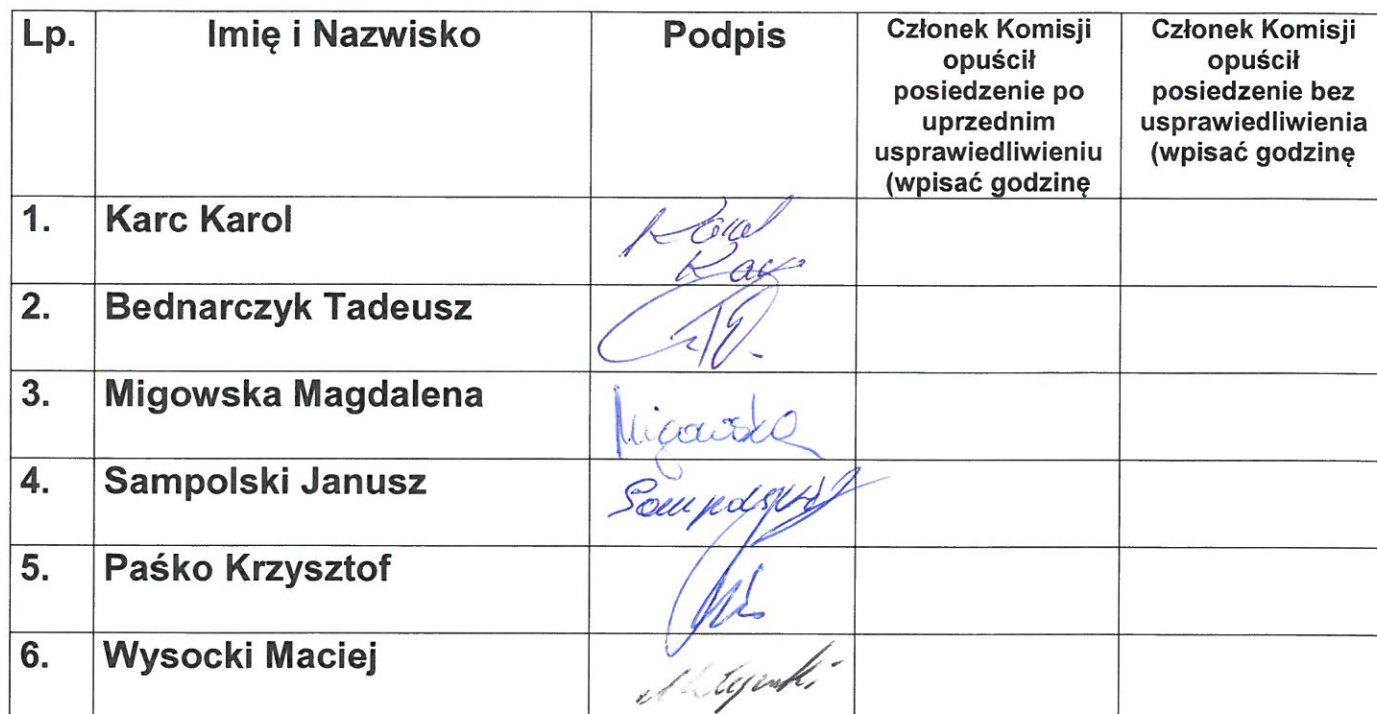 Lp.
Imię i Nazwisko
Podpis
Członek Komisji
opuścił
posiedzenie po
uprzednim
usprawiedliwieniu
(wpisać godzinę
Członek Komisji
opuścił
posiedzenie bez
usprawiedliwienia
(wpisać godzinę
1.
Karc Karol
Karol
Karc
2.
Bednarczyk Tadeusz
3.
Migowska Magdalena
Migowska
4.
Sampolski Janusz
Sampolski
5.
Paśko Krzysztof
6.
Wysocki Maciej